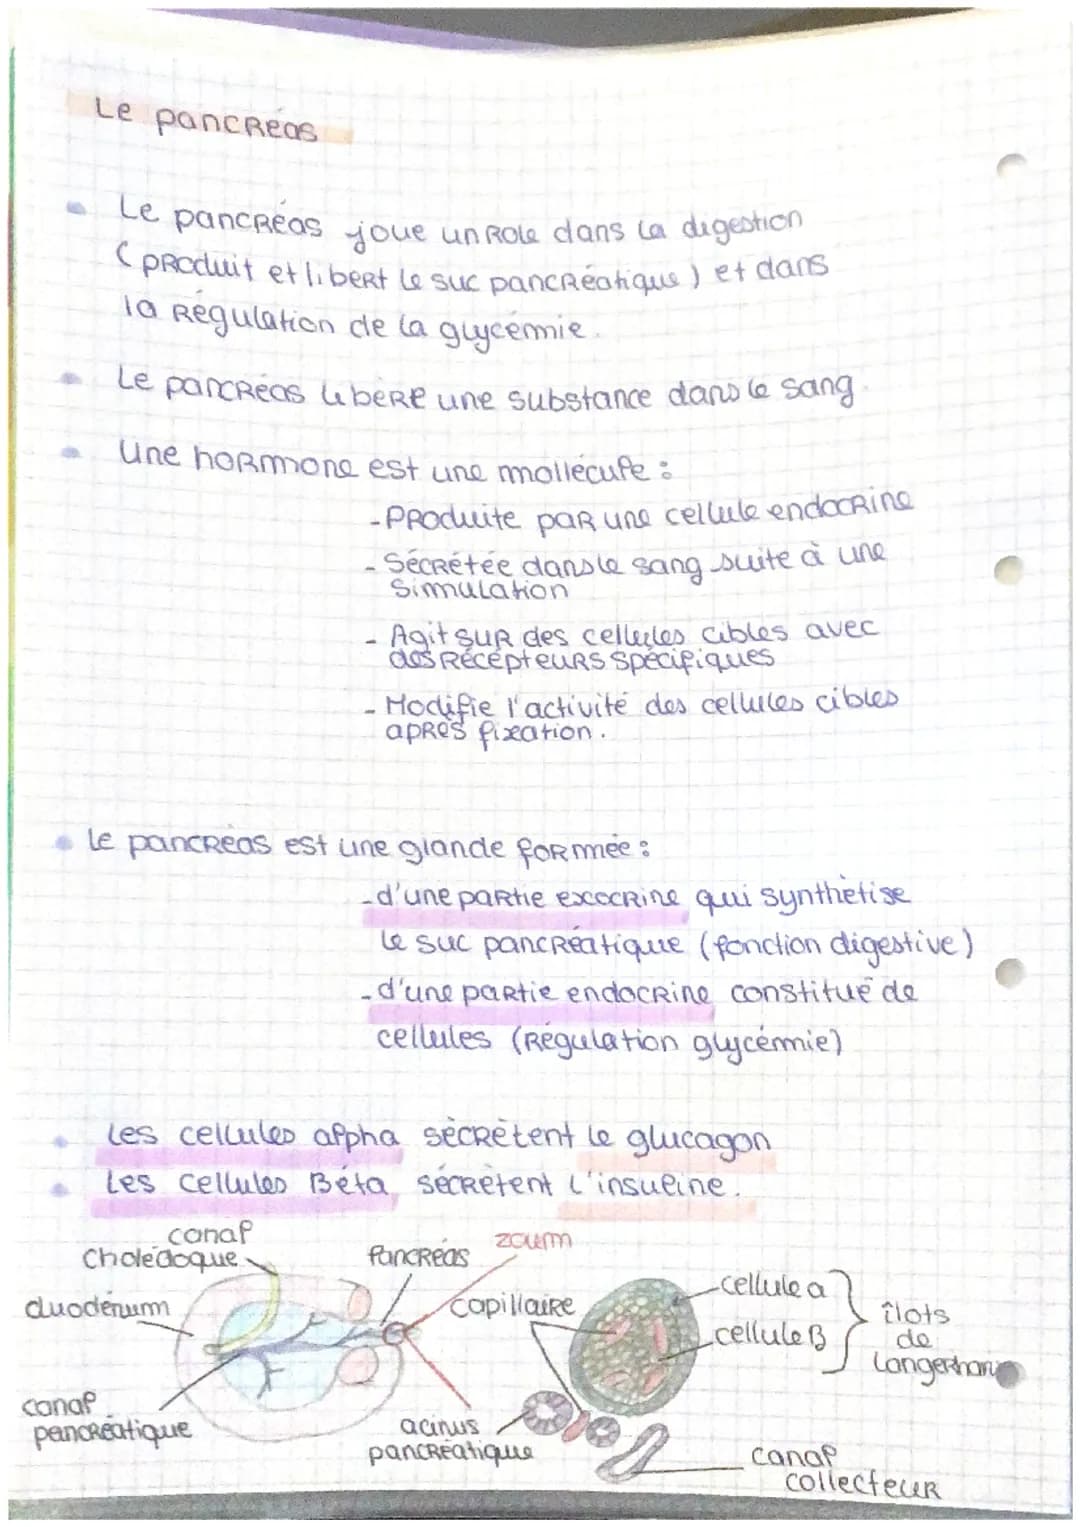 Le pancréas
Le pancréas joue un role dans la digestion
(produit et libert le suc pancréatique) et dans
la régulation de la glycémie.
Le pancréas libère une substance dans le sang.
Une hormone est une mollécule :
-Produite par une cellule endocrine
- Sécrétée dans le sang suite à une
simulation
- Agit sur des cellules cibles avec
des récépteurs spécifiques
- Modifie l'activité des cellules cibles
après fixation.
Le pancréas est une glande formée :
-d'une partie exocrine qui synthétise
le suc pancréatique (fonction digestive)
-d'une partie endocrine constitué de
cellules (régulation glycémie)
Les cellules alpha sécrètent le glucagon
Les cellules Béta sécrètent l'insuline.
canal
cholédoque
Pancréas
zoum
duodénum
capillaire
cellule a
cellule B
îlots
de
Langerhans
canal
pancréatique
acinus
pancréatique
canal
collecteur